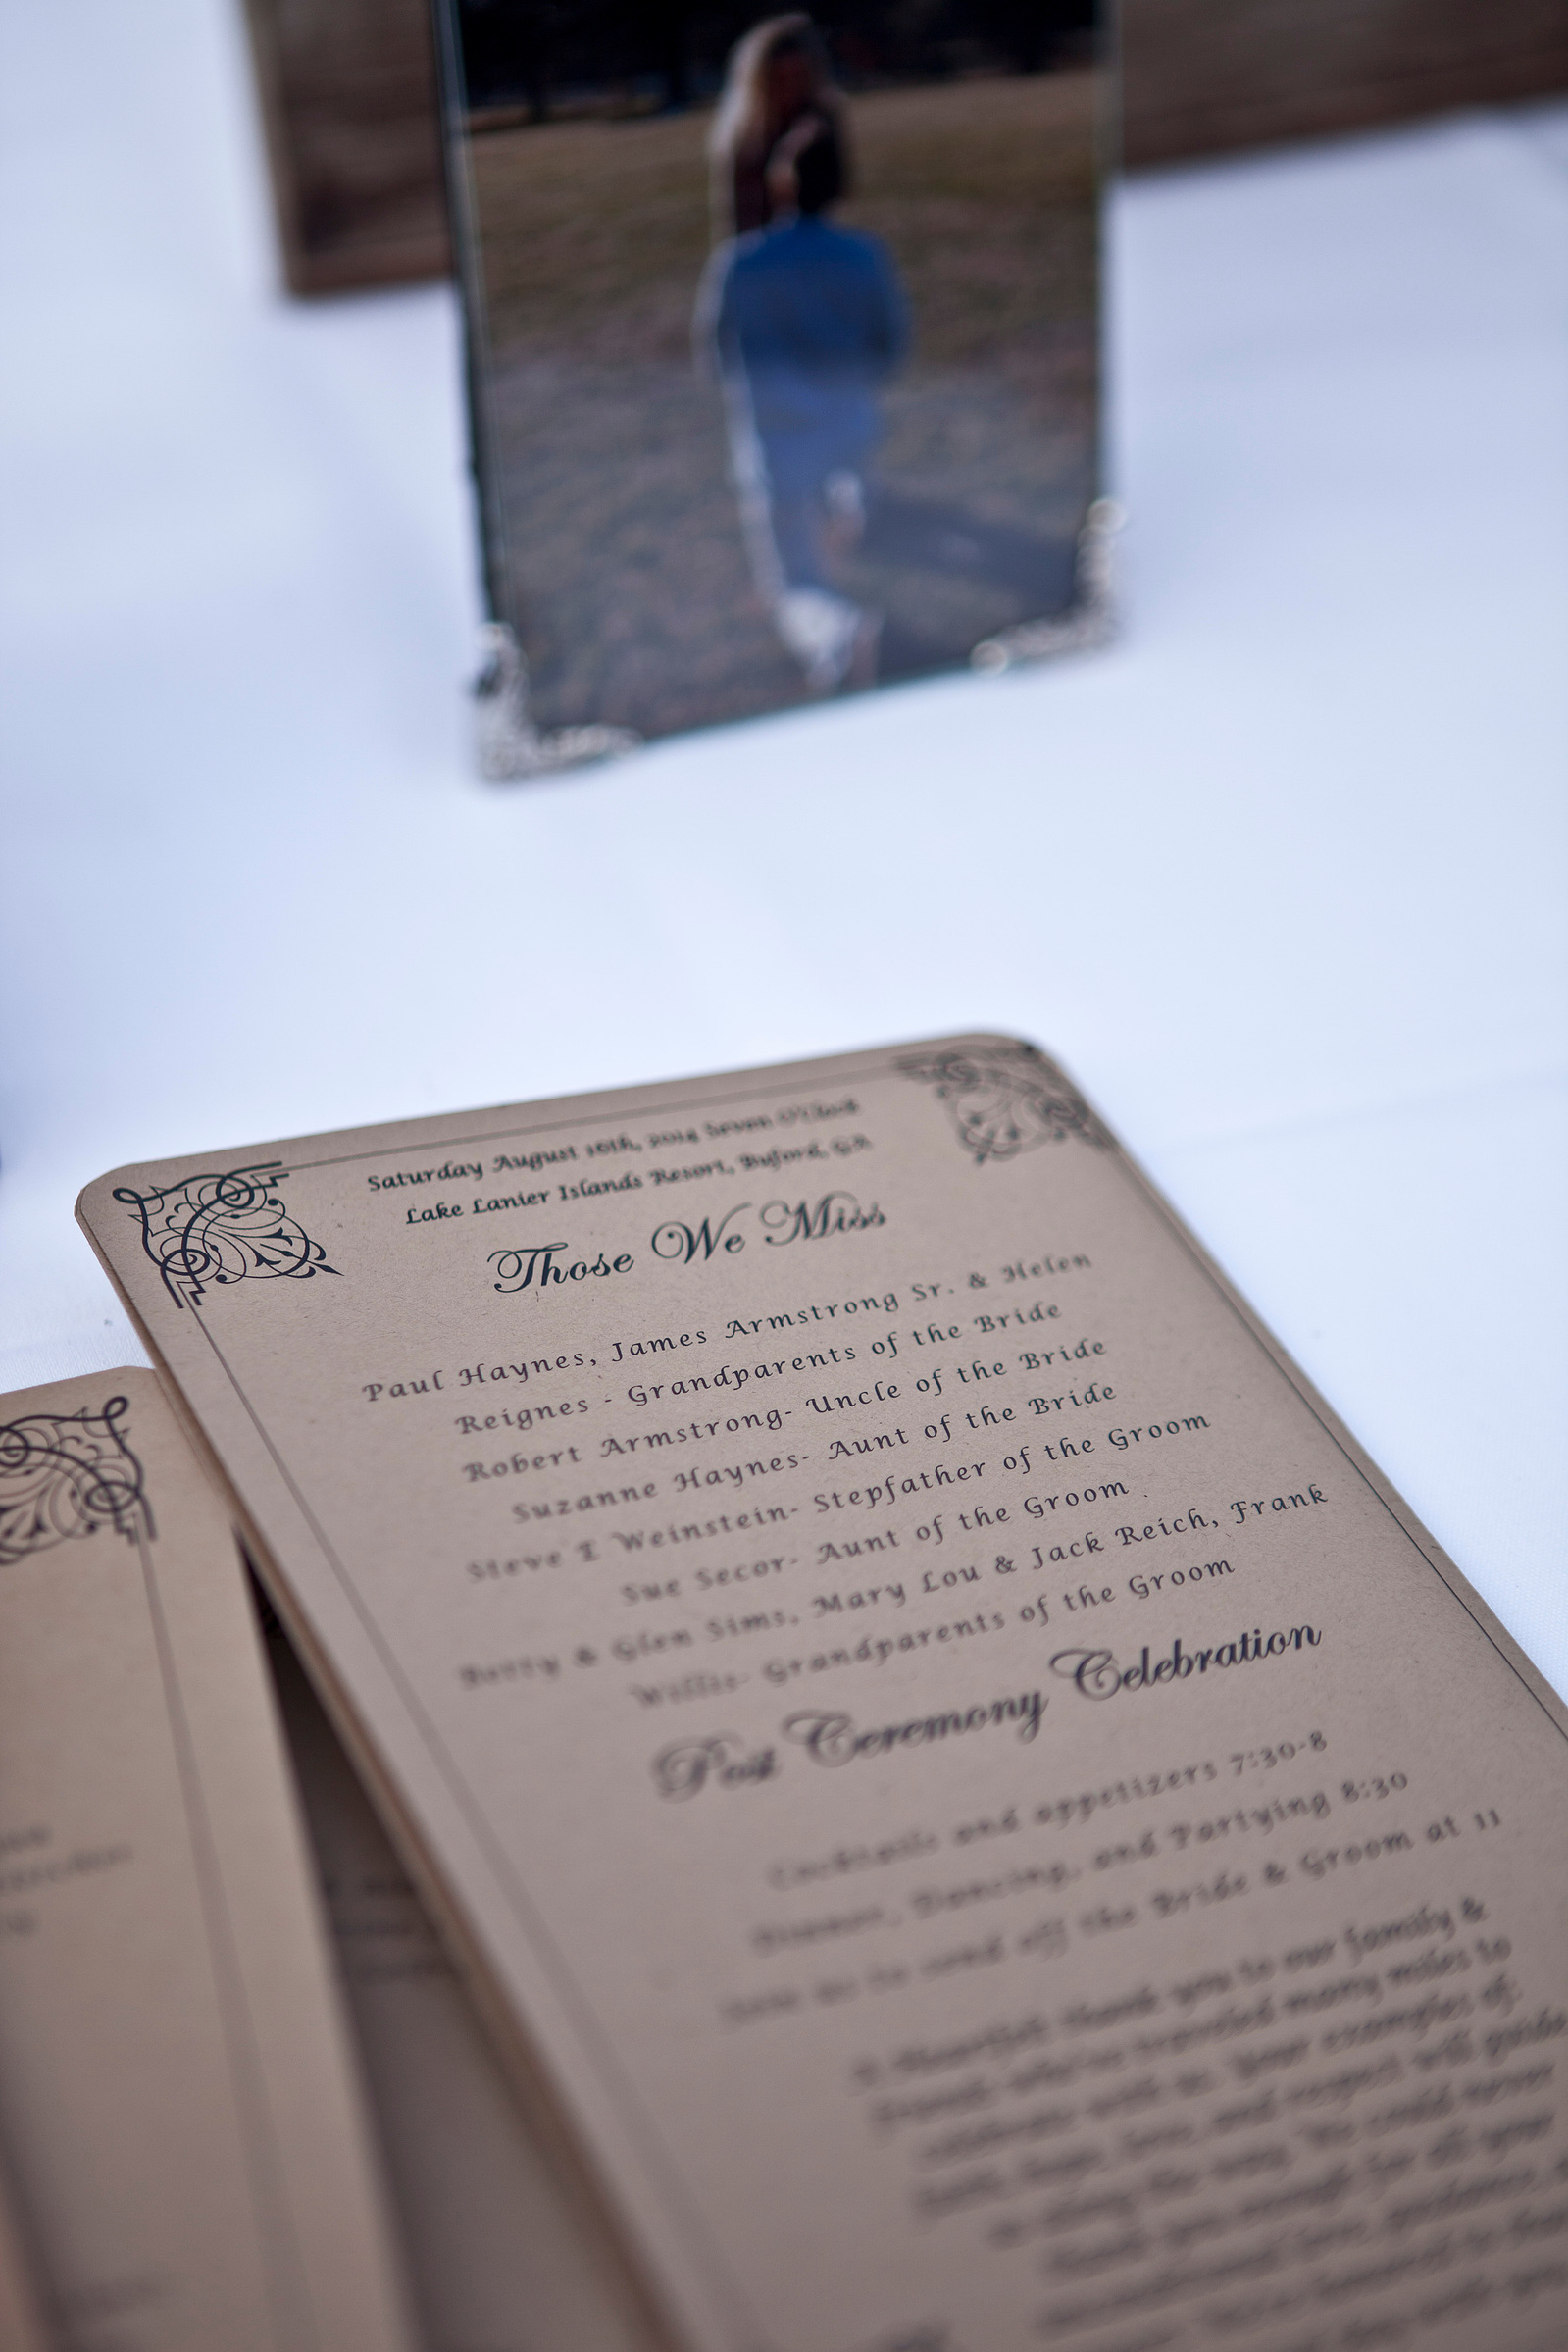 Saturday August 16th, 2014 Seven O'Clock
Lake Lanier Islands Resort, Buford, GA
Those We Miss
Paul Haynes, James Armstrong Sr. & Helen
Reignes - Grandparents of the Bride
Robert Armstrong- Uncle of the Bride
Suzanne Haynes- Aunt of the Bride
Steve E Weinstein- Stepfather of the Groom
Sue Secor- Aunt of the Groom
Betty & Glen Sims, Mary Lou & Jack Reich, Frank
Willis- Grandparents of the Groom
Post Ceremony Celebration
Cocktails and appetizers 7:30-8
Dinner, Dancing, and Partying 8:30
Join us to send off the Bride & Groom at 11
A Heartfelt thank you to our family &
friends who've traveled many miles to
celebrate with us. Your examples of:
faith, hope, love, and respect will guide
us along the way. We could never
thank you enough for all your